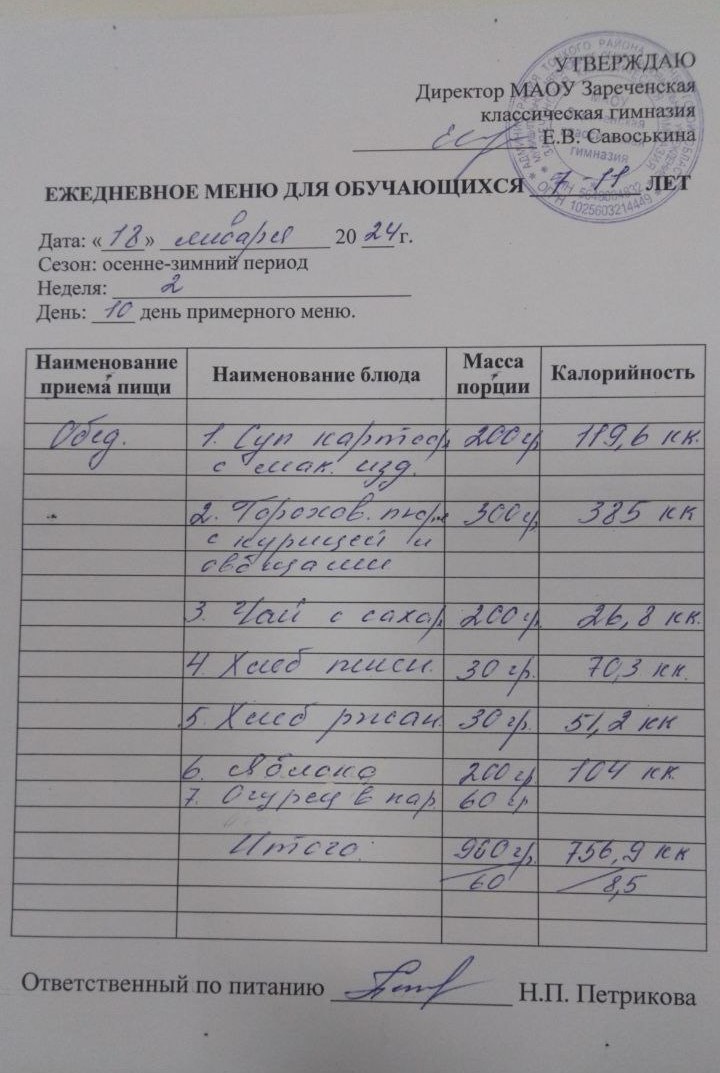 УТВЕРЖДАЮ
Директор МАОУ Зареченская
классическая гимназия
Е.В. Савоськина
ЕЖЕДНЕВНОЕ МЕНЮ ДЛЯ ОБУЧАЮЩИХСЯ 7-11 ЛЕТ
Дата: «18» января 2024 г.
Сезон: осенне-зимний период
Неделя: 2
День: 10 день примерного меню.
Наименование приема пищи Наименование блюда Масса порции Калорийность
Обед. 1. Суп картоф. 200 гр. 119,6 кк.
с мак. изд.
2. Горохов. пюре 300 гр. 385 кк
с курицей и
овощами
3. Чай с сахар. 200 гр. 26,8 кк.
4. Хлеб пшен. 30 гр. 70,3 кк.
5. Хлеб ржан. 30 гр. 51,2 кк
6. Яблоко 200 гр. 104 кк
7. Огурец в нар. 60 гр
Итого: 960 гр. 756,9 кк
60 8,5
Ответственный по питанию Н.П. Петрикова